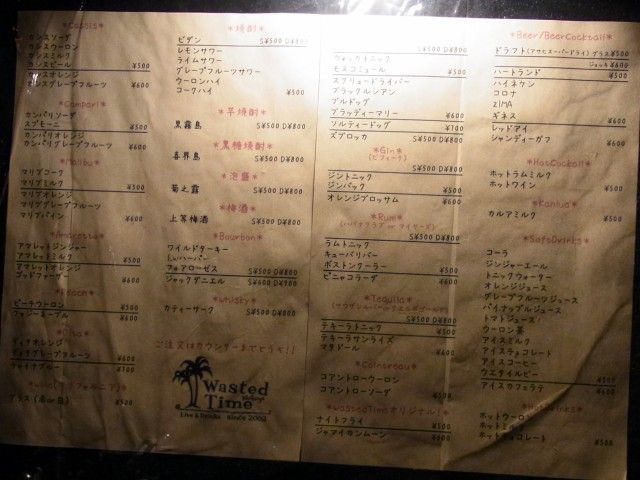 *Cassis*
カシスソーダ
カシスウーロン
カシスミルク ¥500
カシスビール
カシスオレンジ
カシスグレープフルーツ ¥600
*Campari*
カンパリソーダ
スプモーニ ¥500
カンパリオレンジ
カンパリグレープフルーツ ¥600
*Malibu*
マリブコーク
マリブミルク ¥500
マリブオレンジ
マリブグレープフルーツ
マリブパイン ¥600
*Amaretto*
アマレットジンジャー
アマレットミルク ¥500
アマレットオレンジ
ゴッドファーザー ¥600
*Peach*
ピーチウーロン ¥500
ファジーネーブル ¥600
*Dita*
ディタオレンジ
ディタグレープフルーツ ¥600
チャイナブルー
グラス(赤or白) ¥500
*焼酎*
ビダン S¥500 D¥800
レモンサワー
ライムサワー
グレープフルーツサワー
ウーロンハイ
コークハイ ¥500
*芋焼酎*
黒霧島 S¥500 D¥800
*黒糖焼酎*
喜界島 S¥500 D¥800
*泡盛*
菊之露 S¥500 D¥800
*梅酒*
上等梅酒 S¥500 D¥800
*Bourbon*
ワイルドターキー
I.W.ハーパー
フォアローゼス S¥500 D¥800
ジャックダニエル S¥600 D¥900
*whisky*
カティーサーク S¥500 D¥800
ご注文はカウンターまでどうぞ!!
Wasted Time
Live & Drinks Since 2002
S¥500 D¥800
ウォッカトニック
モスコミュール ¥500
スクリュードライバー
ブラックルシアン
ブルドッグ
ブラッディーマリー ¥600
ソルティードッグ ¥700
ズブロッカ S¥500 D¥800
*Gin*
(ビフィータ)
S¥500 D¥800
ジントニック
ジンバック ¥500
オレンジブロッサム ¥600
*Rum*
S¥500 D¥800
ラムトニック
キューバリバー
ボストンクーラー ¥500
ピニャコラーダ ¥600
*Tequila*
S¥500 D¥800
テキーラトニック ¥500
テキーラサンライズ
マタドール ¥600
*Cointreau*
コアントローウーロン
コアントローソーダ ¥500
*WastedTimeオリジナル!*
ナイトフライ ¥500
ジャマイカンムーン ¥600
*Beer/BeerCocktail*
ドラフト(アサヒスーパードライ) グラス¥500
ジョッキ¥600
ハートランド ¥500
ハイネケン
コロナ
ZIMA
ギネス ¥600
レッドアイ
シャンディーガフ ¥600
*HotCocktail*
ホットラムミルク
ホットワイン ¥500
*Kahlua*
カルアミルク ¥500
*SoftDrinks*
コーラ
ジンジャーエール
トニックウォーター
オレンジジュース
グレープフルーツジュース
パイナップルジュース
トマトジュース
ウーロン茶
アイスミルク
アイスチョコレート
アイスコーヒー
ウエタイルビー ¥500
アイスカフェラテ ¥600
*HotDrinks*
ホットウーロン
ホットミルク
ホットチョコレート ¥500